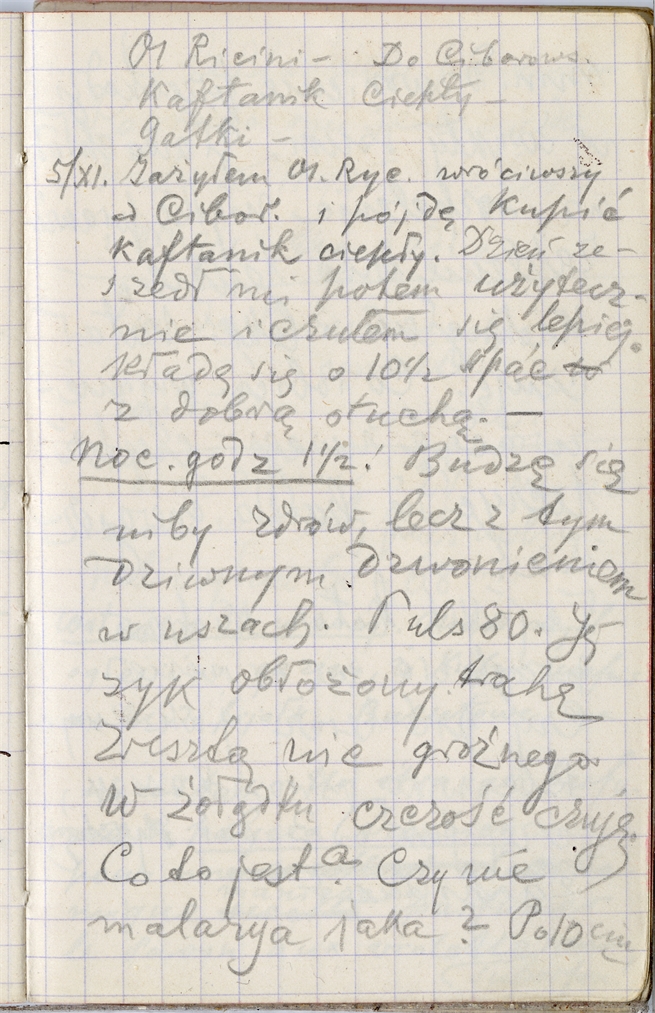 Ol Ricini – Do Ciborows.
Kaftanik ciepły –
gatki –
5/XI. Zażyłem Ol. Ryc. wróciwszy
od Cibor. i pójdę kupić
kaftanik ciepły. Dzień ze-
szedł mi potem użytecz-
nie i czułem się lepiej.
Kładę się o 10 1/2 spać
z dobrą otuchą. —
Noc. godz 1 1/2! Budzę się
niby zdrów, lecz z tym
dziwnym dzwonieniem
w uszach. Puls 80. Ję
zyk obłożony trohę
Zresztą nic groźnego
W żołądku czczość czuję.
Co to jest? Czy nie
malarya jaka? Po 10